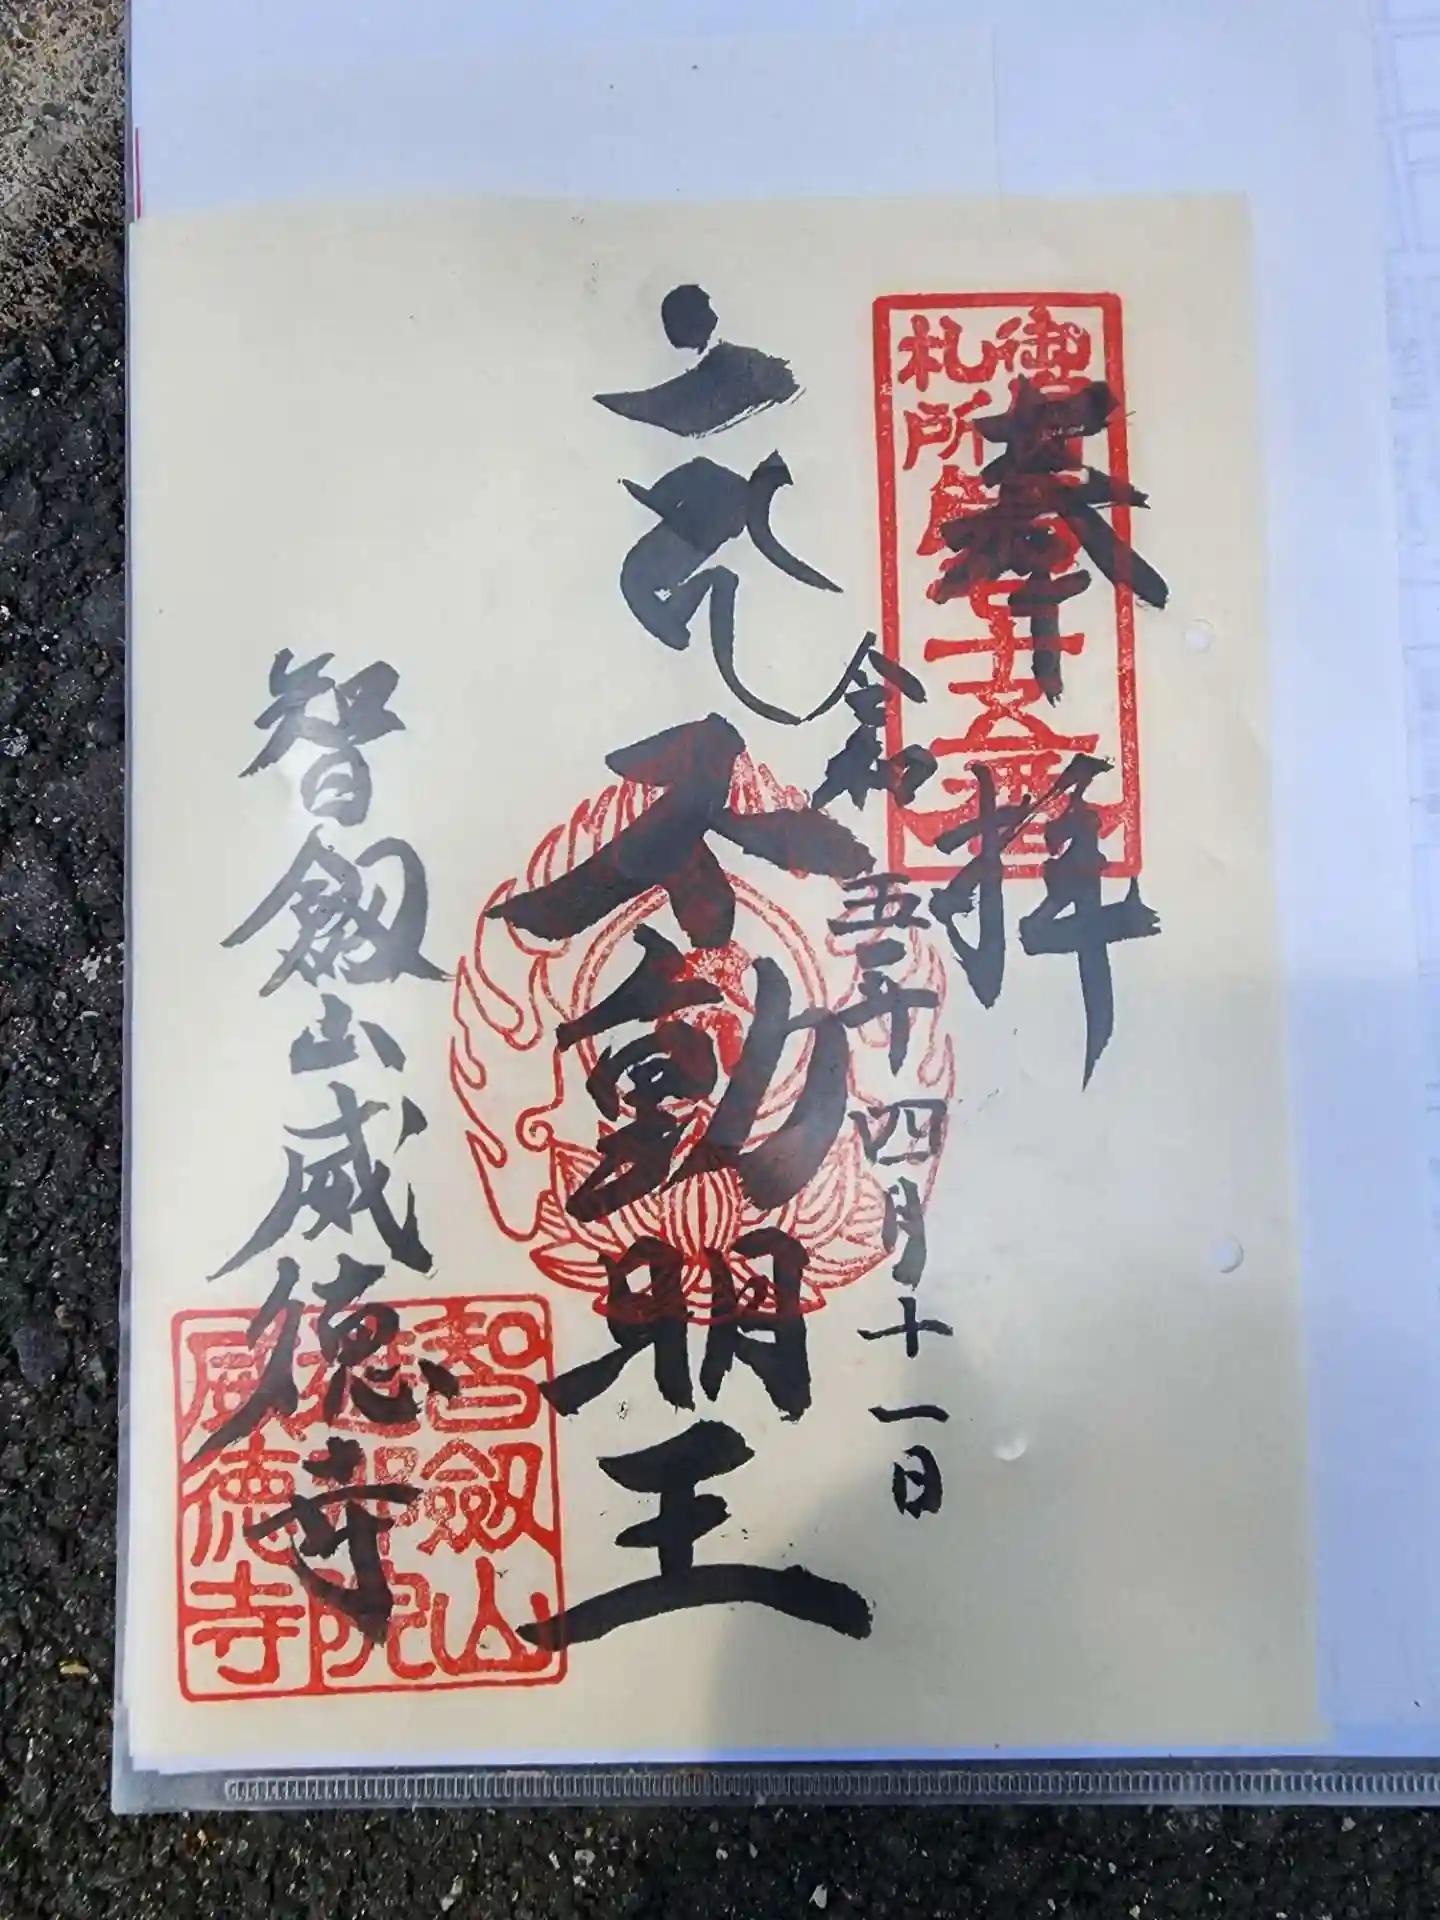 奉拝
札所
七十五番
令和五年四月十一日
不動明王
智劔山威徳寺
智劔山
遮那院
威徳寺